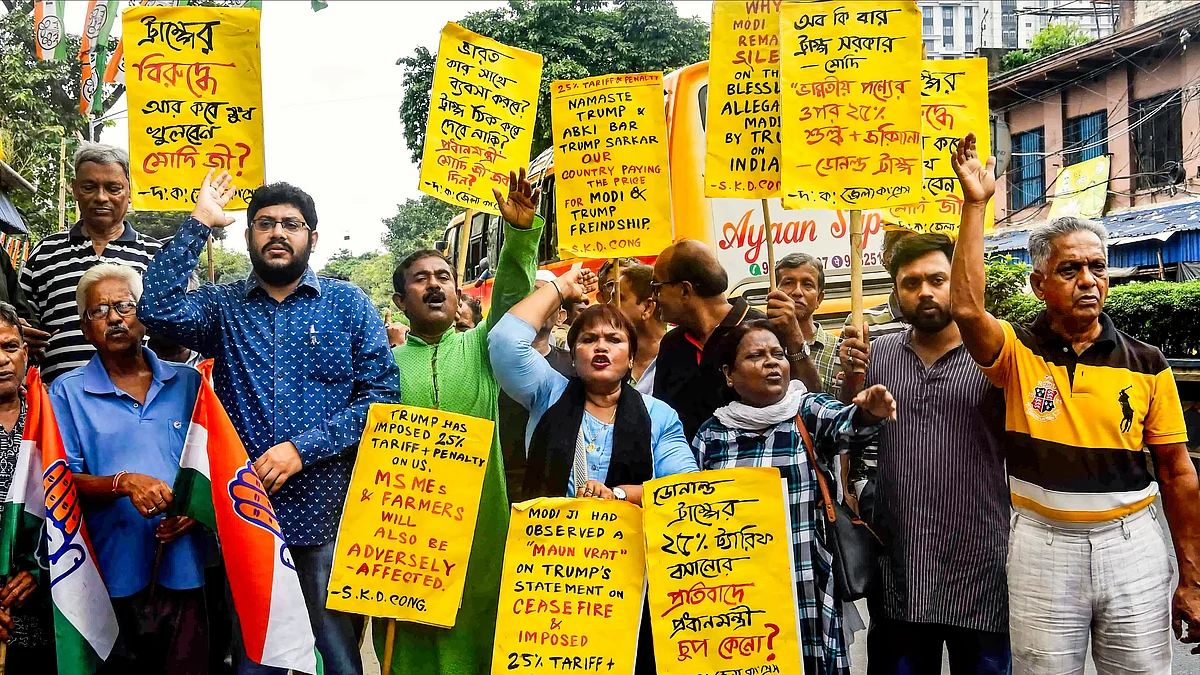 ট্রাম্পের
বিরুদ্ধে
আর কবে মুখ
খুলবেন
মোদি জী?
ভারত
কার সাথে
ব্যবসা করবে?
ট্রাম্প ঠিক করে
দেবে নাকি?
প্রধানমন্ত্রী
মোদি জী
25% TARIFF & PENALTY
NAMASTE
TRUMP &
ABKI BAR
TRUMP SARKAR
OUR
COUNTRY PAYING
THE PRICE
FOR MODI &
TRUMP
FRIENDSHIP.
S.K.D. CONG
WHY
MODI
REMA
SILE
ON TH
BLESSU
ALLEGA
MAD
BY TRU
ON
INDIA
-S.K.D. CON
অব কি বার
ট্রাম্প সরকার
- মোদি
"ভারতীয় পণ্যের
ওপর ২৫%
শুল্ক + জরিমানা
- ডোনাল্ড ট্রাম্প
-দ: ক: জেলা কংগ্রেস
Ayaan
TRUMP HAS
IMPOSED 25%
TARIFF + PENALTY
ON US.
MSMEs
& FARMERS
WILL
ALSO BE
ADVERSELY
-AFFECTED.
-S.K.D. CONG.
MODI JI HAD
OBSERVED A
"MAUN VRAT"
ON TRUMP'S
STATEMENT ON
CEASEFIRE
&
IMPOSED
25% TARIFF +
ডোনাল্ড
ট্রাম্পের
২৫% ট্যারিফ
বসানোর
প্রতিবাদে
প্রধানমন্ত্রী
চুপ কেনো?